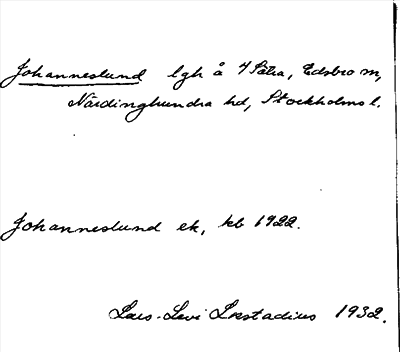 Johanneslund lgh å Y Sätra, Edsbro sn,
Närdinghundra hd, Stockholms l.
Johanneslund ek, kb 1922.
Lars-Levi Læstadius 1932.